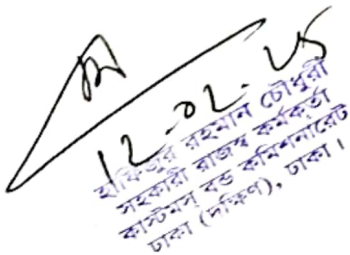 12.02.25
হাফিজুর রহমান চৌধুরী
সহকারী রাজস্ব কর্মকর্তা
কাস্টমস্ বন্ড কমিশনারেট
ঢাকা (দক্ষিণ), ঢাকা।